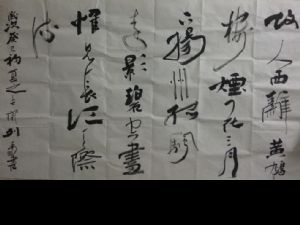 故人西離黄鶴
樓煙花三月
下揚州孤帆
遠影碧空盡
惟見長江天際
流